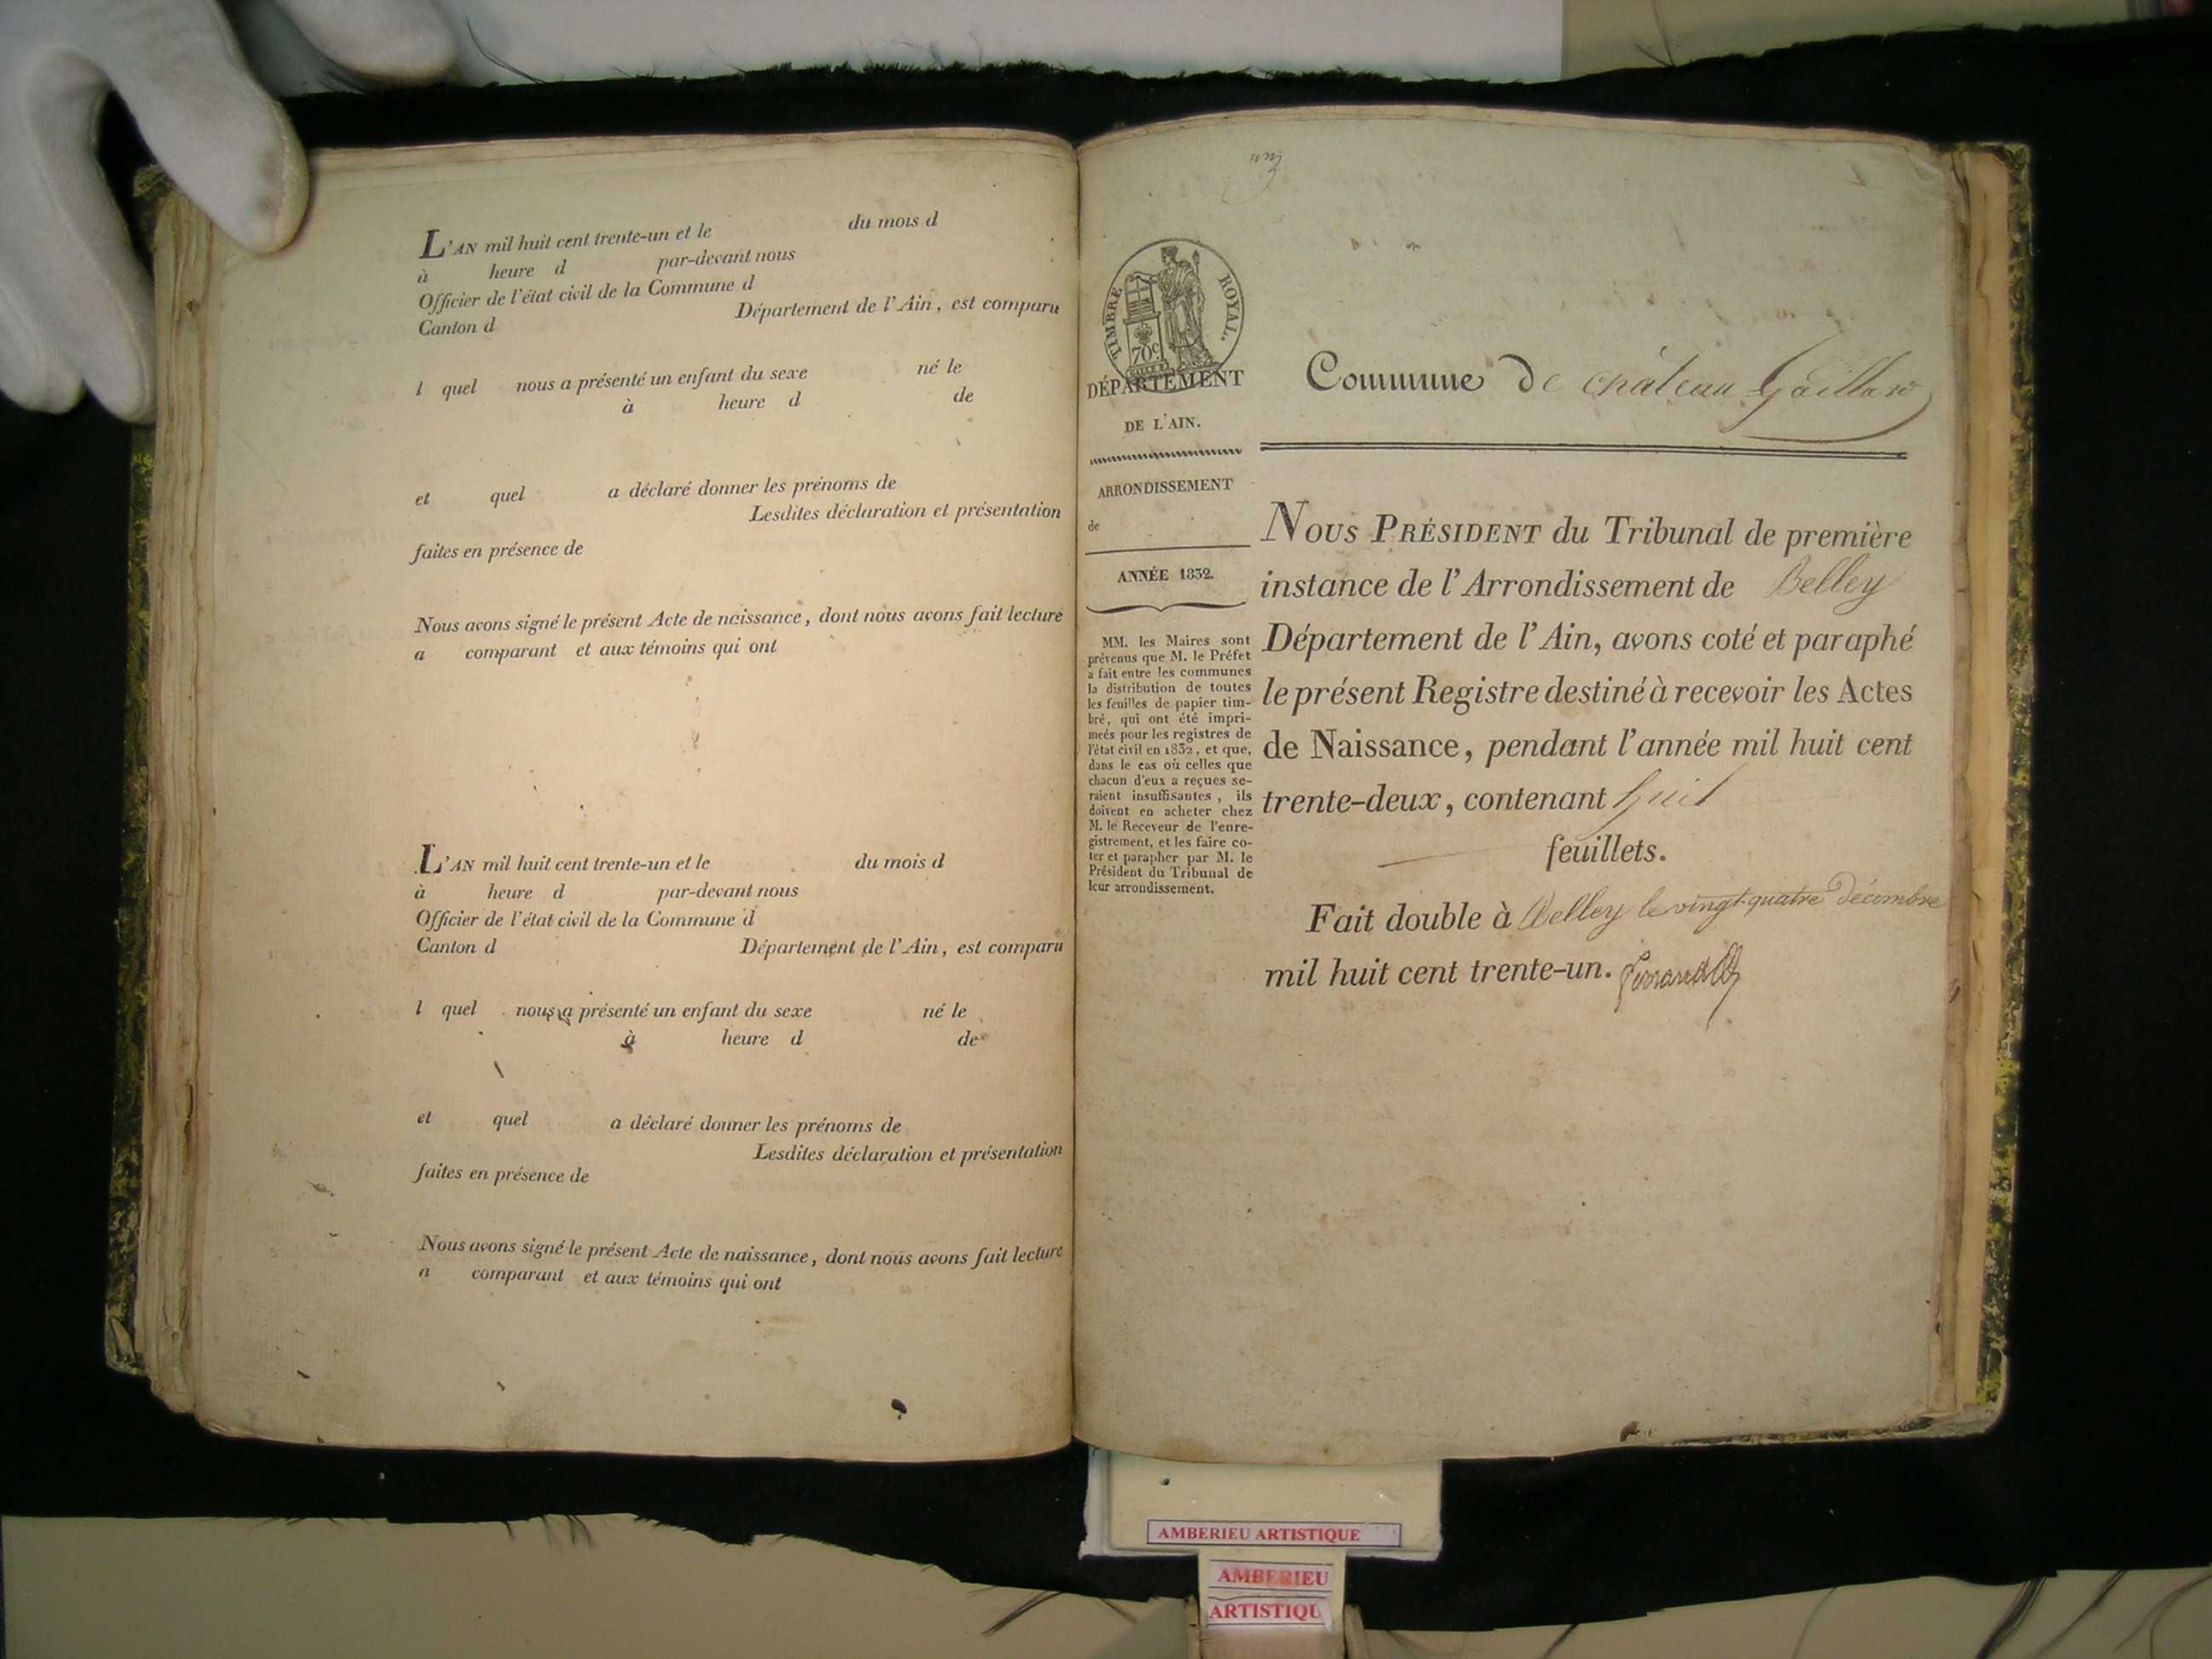 L'AN mil huit cent trente-un et le du mois d
à heure d par-devant nous
Officier de l'état civil de la Commune d
Canton d Département de l'Ain, est comparu
l quel nous a présenté un enfant du sexe né le
à heure d de
et quel a déclaré donner les prénoms de
Lesdites déclaration et présentation
faites en présence de
Nous avons signé le présent Acte de naissance, dont nous avons fait lecture
a comparant et aux témoins qui ont
L'AN mil huit cent trente-un et le du mois d
à heure d par-devant nous
Officier de l'état civil de la Commune d
Canton d Département de l'Ain, est comparu
l quel nous a présenté un enfant du sexe né le
à heure d de
et quel a déclaré donner les prénoms de
Lesdites déclaration et présentation
faites en présence de
Nous avons signé le présent Acte de naissance, dont nous avons fait lecture
a comparant et aux témoins qui ont
TIMBRE ROYAL.
70c
DÉPARTEMENT
DE L'AIN.
ARRONDISSEMENT
de
ANNÉE 1832.
MM. les Maires sont
prévenus que M. le Préfet
a fait entre les communes
la distribution de toutes
les feuilles de papier tim-
bré, qui ont été impri-
meés pour les registres de
l'état civil en 1832, et que,
dans le cas où celles que
chacun d'eux a reçues se-
raient insuffisantes, ils
doivent en acheter chez
M. le Receveur de l'enre-
gistrement, et les faire co-
ter et parapher par M. le
Président du Tribunal de
leur arrondissement.
Commune de château Gaillard
NOUS PRÉSIDENT du Tribunal de première
instance de l'Arrondissement de Belley
Département de l'Ain, avons coté et paraphé
le présent Registre destiné à recevoir les Actes
de Naissance, pendant l'année mil huit cent
trente-deux, contenant huit
feuillets.
Fait double à Belley le vingt-quatre Décembre
mil huit cent trente-un.
AMBERIEU ARTISTIQUE
AMBERIEU
ARTISTIQU